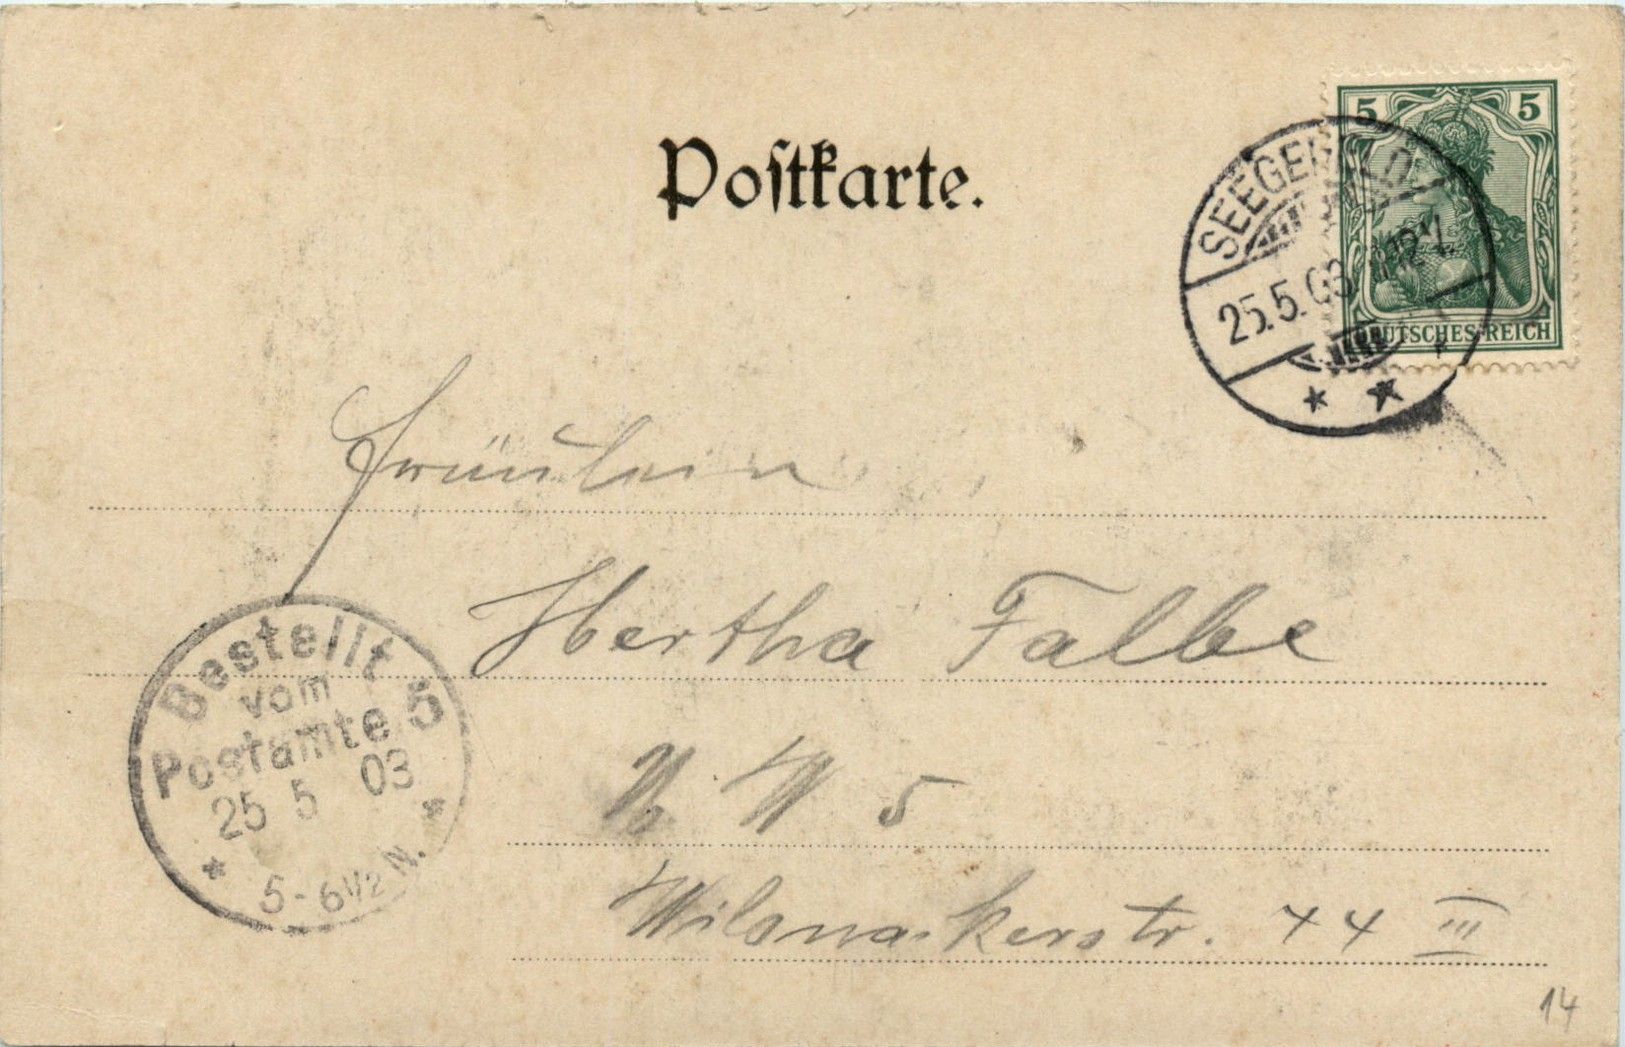 Postkarte.
5 5
DEUTSCHES REICH
SEEGEFELD
25.5.03
Fräulein
Hertha Falbe
N. W 5
Wilsnackerstr. 44 III
Bestellt
vom
Postamte 5
25 5 03
5-6 1/2 N.
14